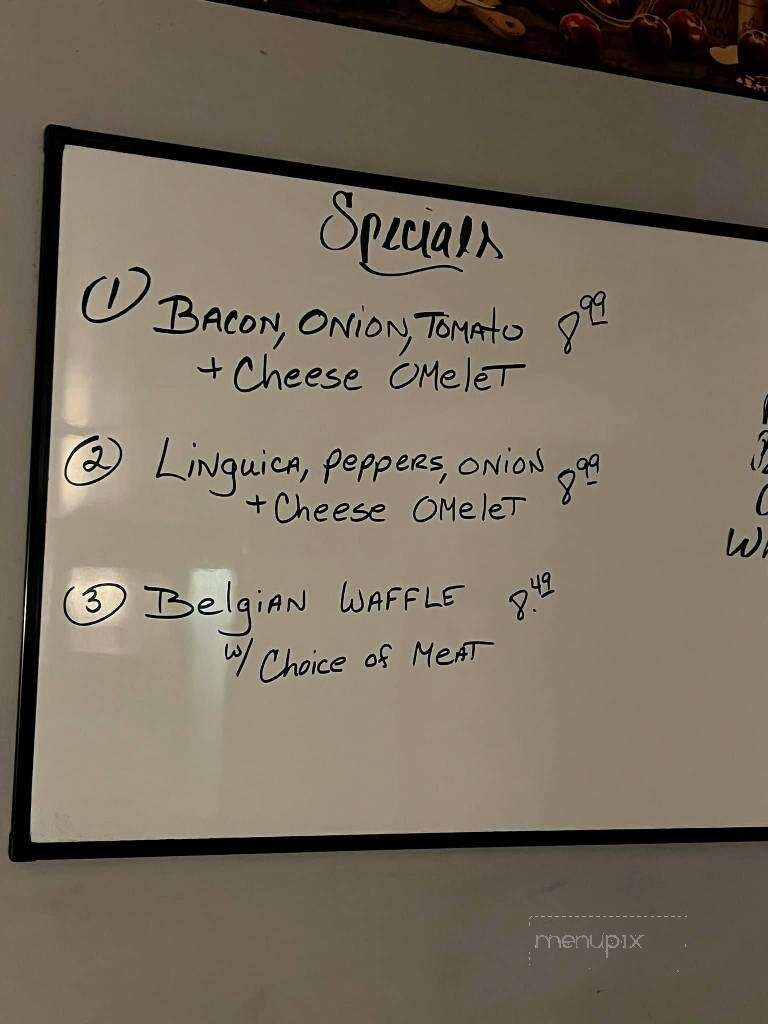 Specials
① BACON, ONION, TOMATO 8 99
+ Cheese OMeleT
② LINguicA, PePPeRS, ONION 8 99
+ Cheese OMeleT
③ BelgiAN WAFFLE 8.49
w/ Choice of MeAT
menupix